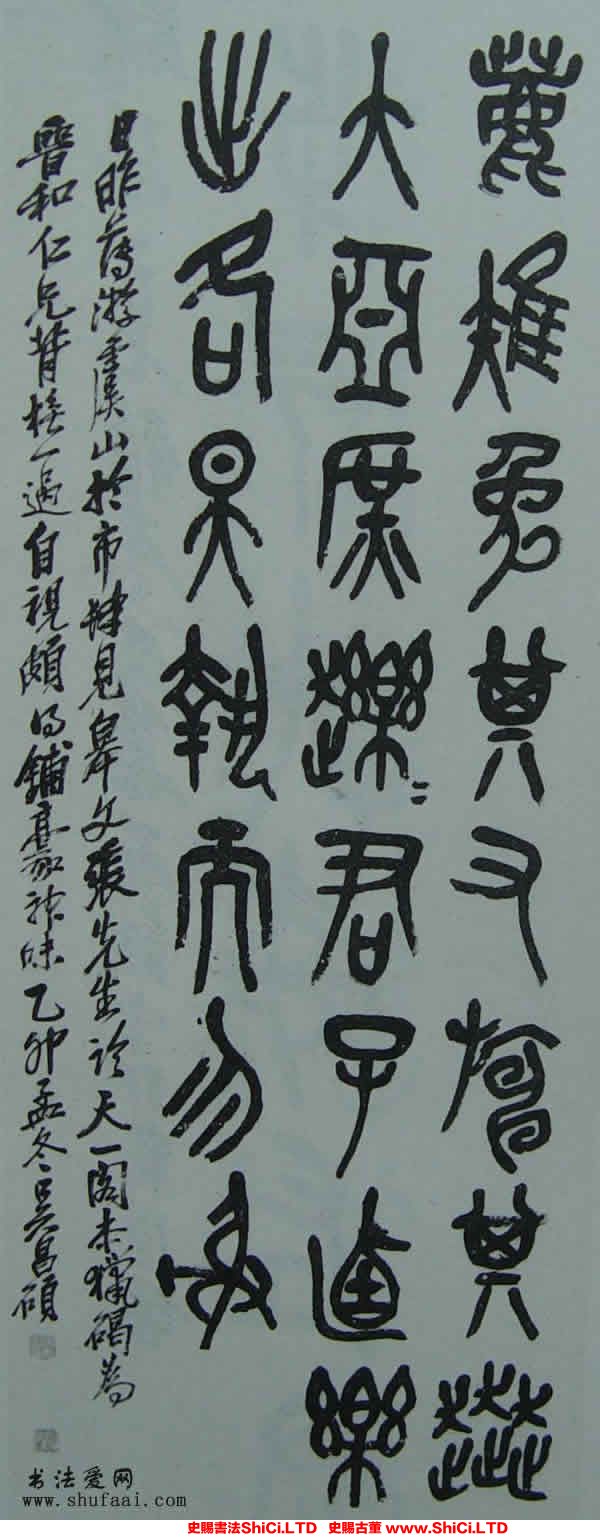 鹿雉兔其又旃其奔
大亞庶君子逌樂
出各昊執而勿射
日昨薄游山於市肆見皋文張先生天一閣本獵碣為
晉和仁兄背橅一過自視頗得鋪豪神味乙卯孟冬吳昌碩
书法爱网
www.shufaai.com
史賜書法ShiCi.LTD 史賜古董 www.ShiCi.LTD